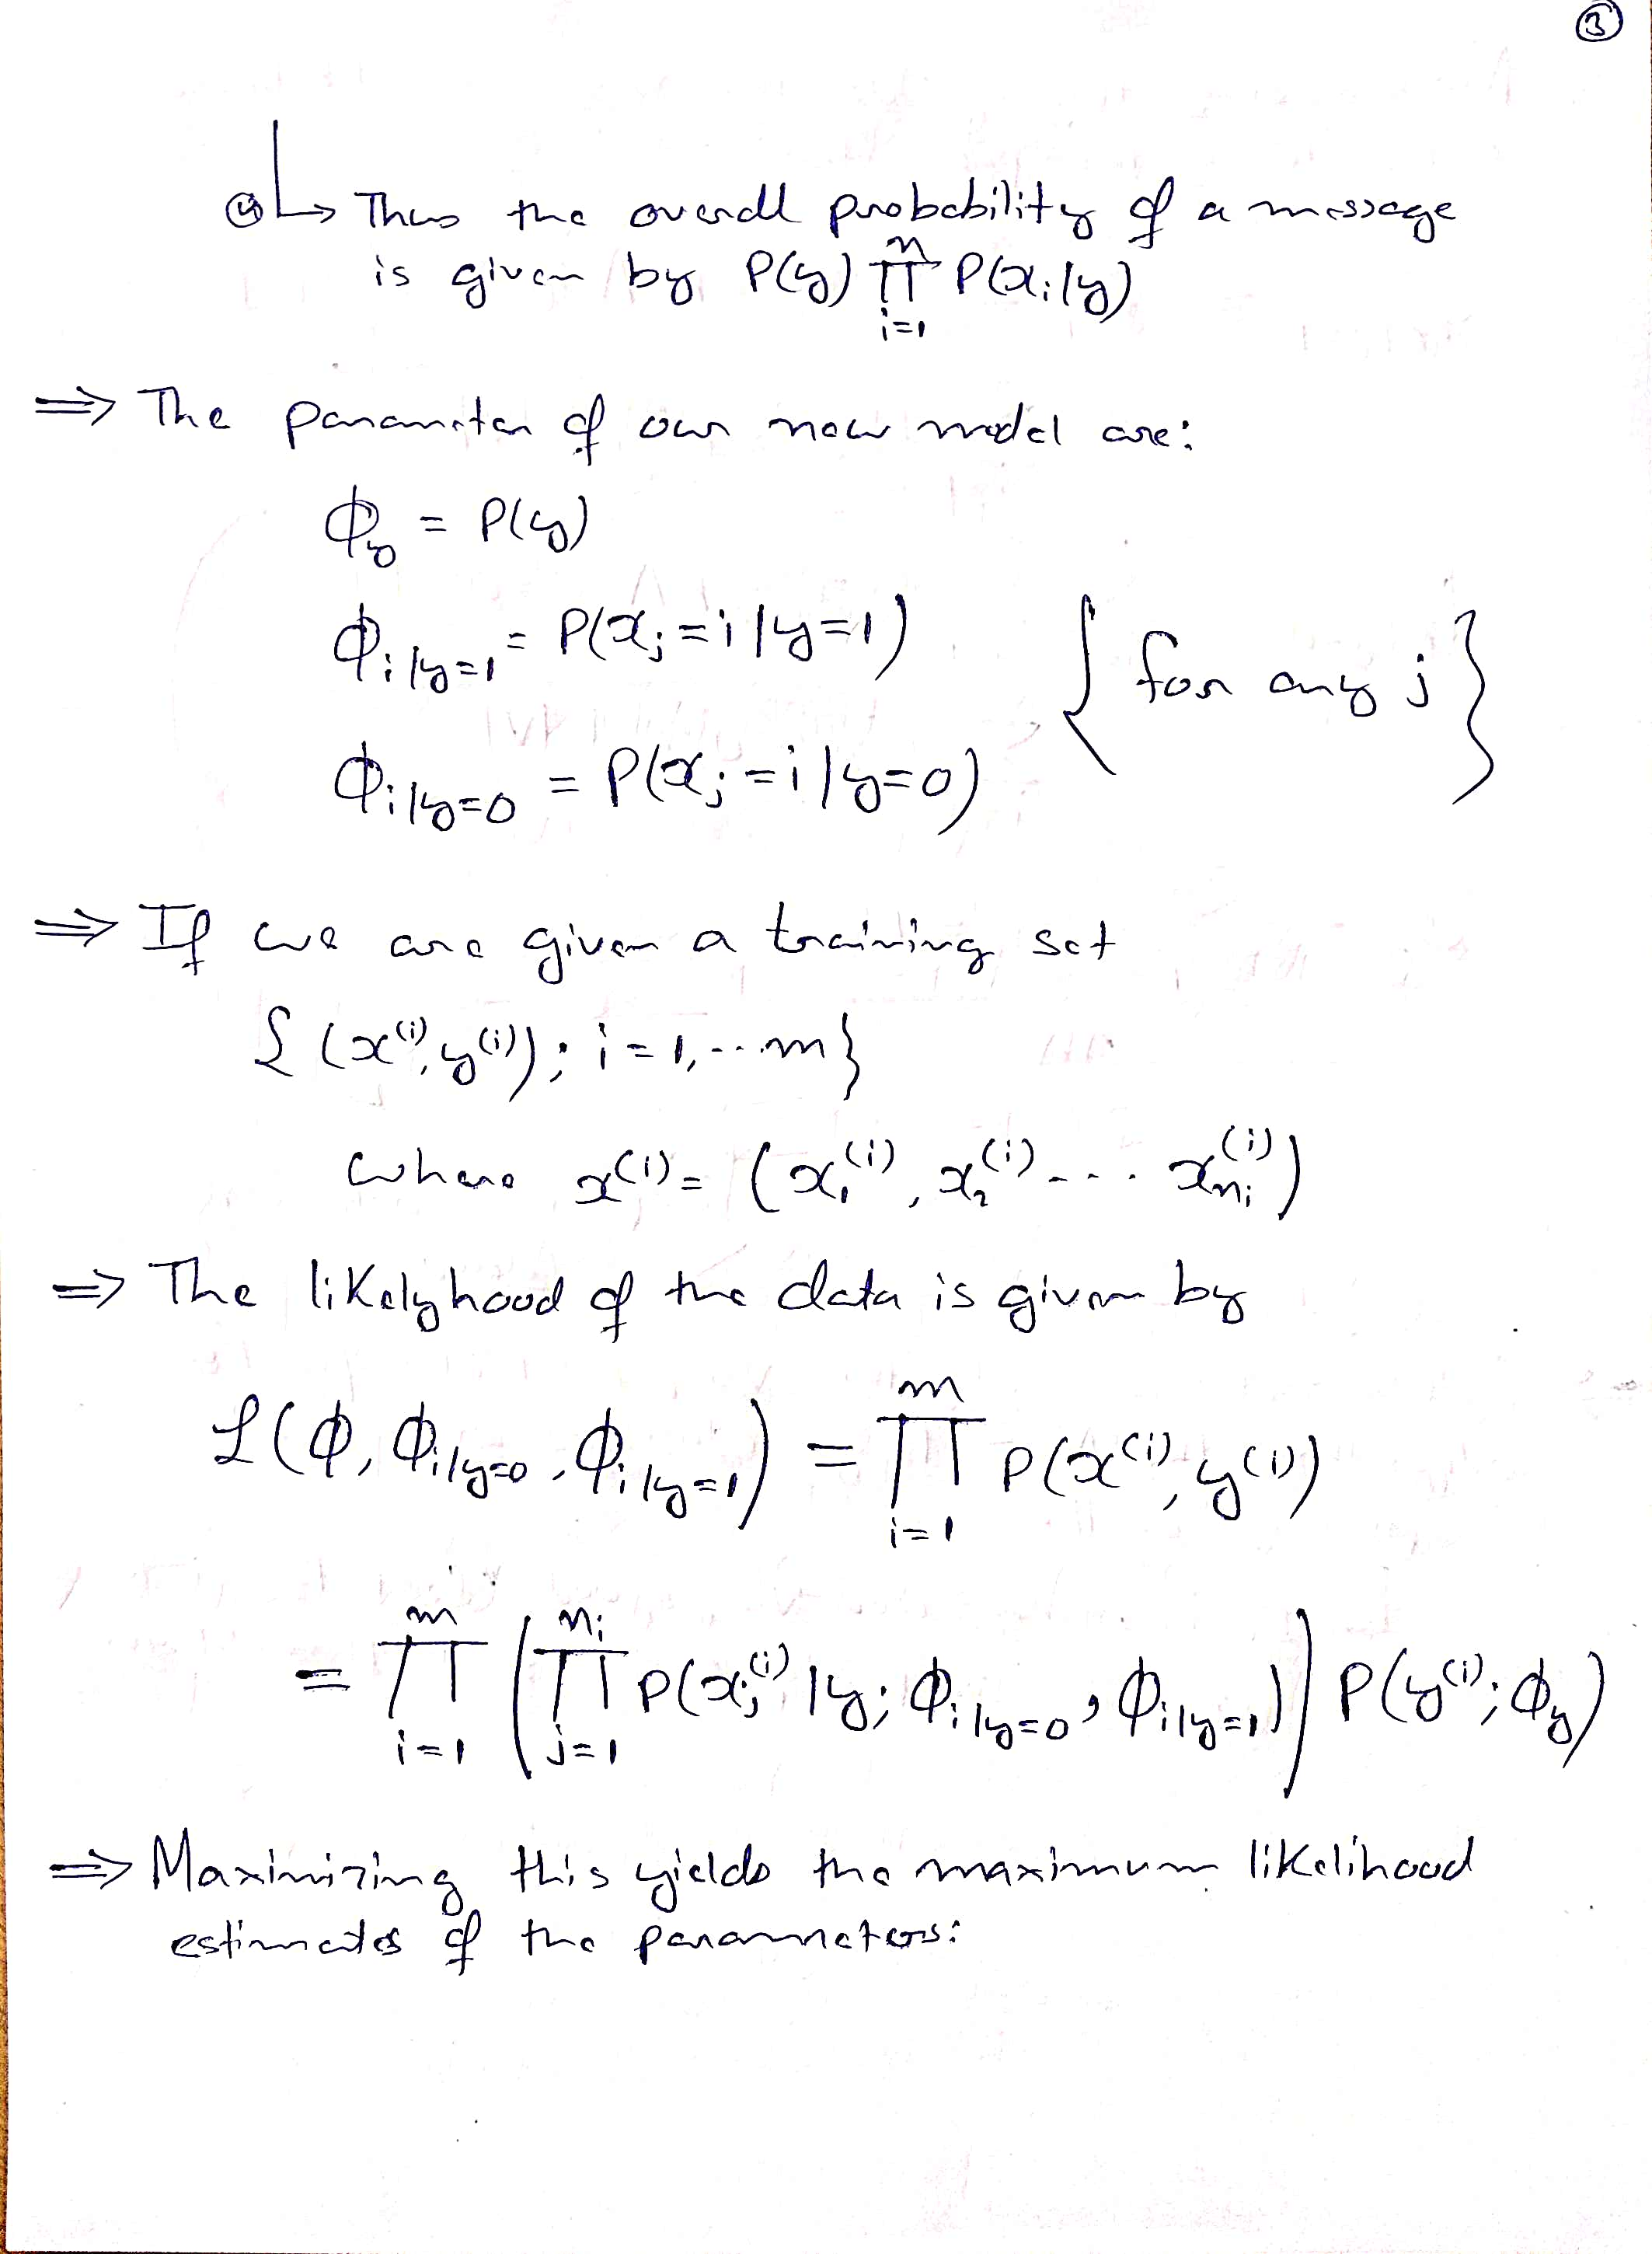 ③
④ ↳ Thus the overall probability of a message
is given by P(y) ∏_{i=1}^{n} P(x_i|y)
⇒ The parameter of our new model are:
ϕ_y = P(y)
ϕ_{i|y=1} = P(x_j = i | y=1)
{ for any j }
ϕ_{i|y=0} = P(x_j = i | y=0)
⇒ If we are given a training set
{ (x^{(i)}, y^{(i)}); i = 1, ... m }
where x^{(i)} = (x_1^{(i)}, x_2^{(i)} ... x_{n_i}^{(i)})
⇒ The likelyhood of the data is given by
L(ϕ, ϕ_{i|y=0}, ϕ_{i|y=1}) = ∏_{i=1}^{m} P(x^{(i)}, y^{(i)})
= ∏_{i=1}^{m} ( ∏_{j=1}^{n_i} P(x_j^{(i)} | y; ϕ_{i|y=0}, ϕ_{i|y=1}) ) P(y^{(i)}; ϕ_y)
⇒ Maximizing this yields the maximum likelihood
estimates of the parameters: